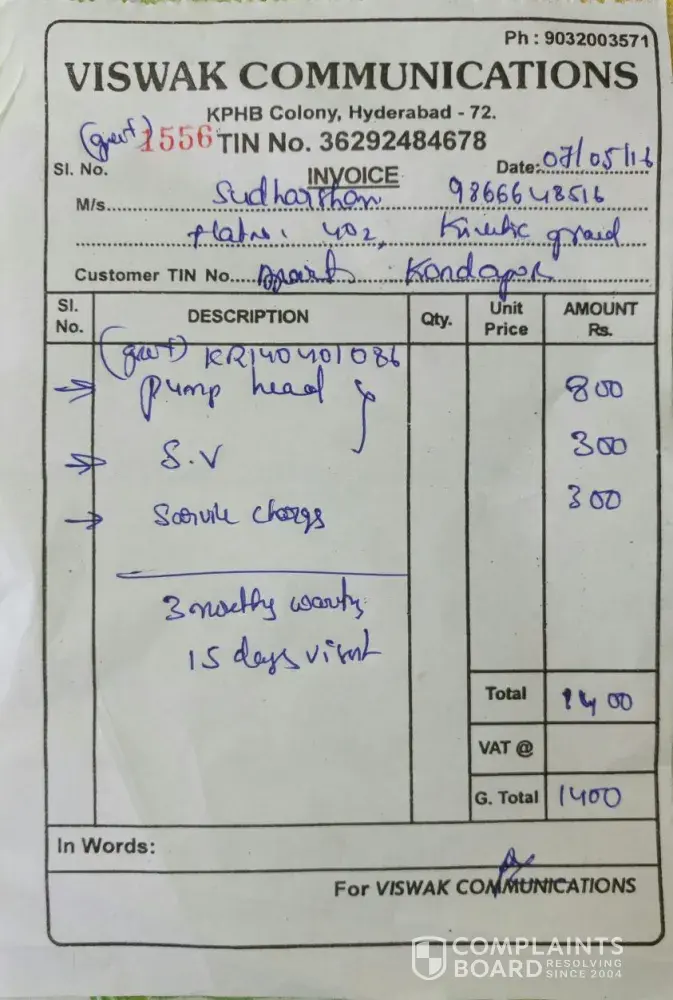 Ph : 9032003571
VISWAK COMMUNICATIONS
KPHB Colony, Hyderabad - 72.
1556 TIN No. 36292484678
Sl. No.
INVOICE
Date: 07/05/16
M/s. Sudharshan 9866648516
402, Kinetic
Customer TIN No. Kondapur
Sl. No. DESCRIPTION Qty. Unit Price AMOUNT Rs.
KR140401086
pump head 800
S.V 300
300
15 days
Total 1400
VAT @
G. Total 1400
In Words:
For VISWAK COMMUNICATIONS
COMPLAINTS BOARD
RESOLVING SINCE 2004